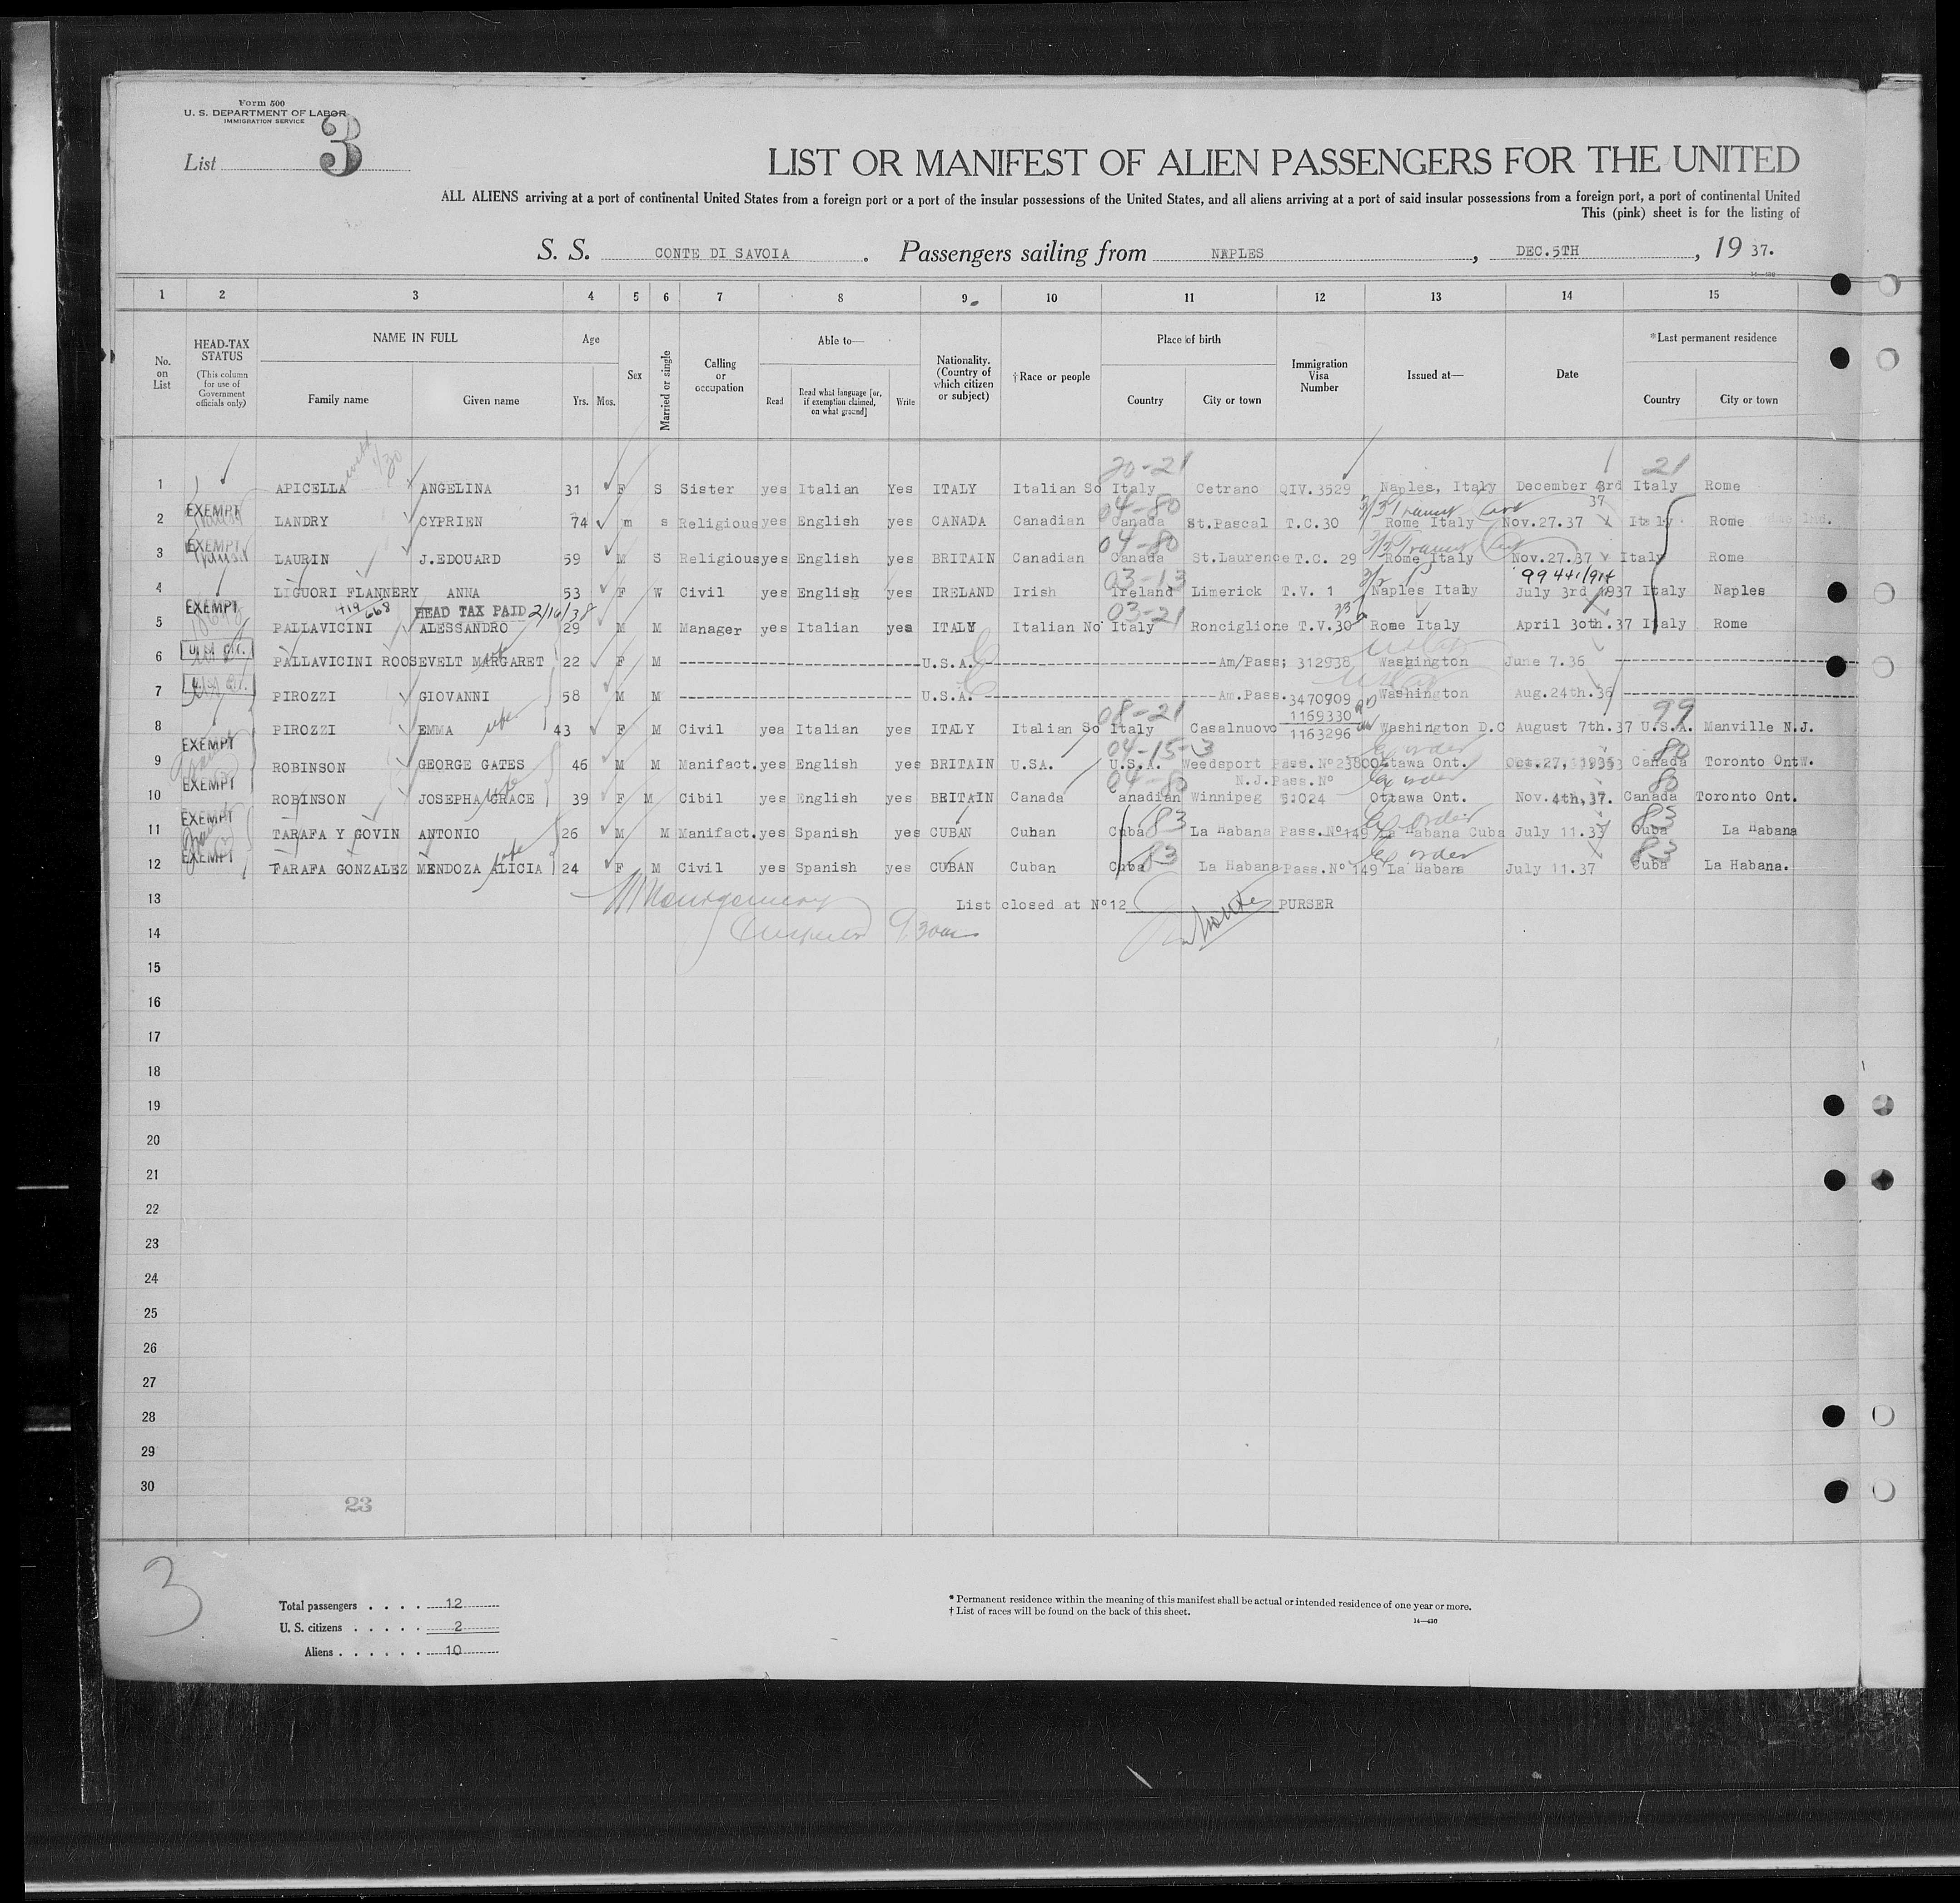 Form 500
U. S. DEPARTMENT OF LABOR
IMMIGRATION SERVICE
List 3
LIST OR MANIFEST OF ALIEN PASSENGERS FOR THE UNITED
ALL ALIENS arriving at a port of continental United States from a foreign port or a port of the insular possessions of the United States, and all aliens arriving at a port of said insular possessions from a foreign port, a port of continental United
This (pink) sheet is for the listing of
S. S. CONTE DI SAVOIA . Passengers sailing from NAPLES , DEC.5TH , 19 37.
1 2 3 4 5 6 7 8 9 10 11 12 13 14 15
No. on List
HEAD-TAX STATUS
(This column for use of Government officials only)
NAME IN FULL
Family name Given name
Age
Yrs. Mos.
Sex
Married or single
Calling or occupation
Able to—
Read Read what language [or, if exemption claimed, on what ground] Write
Nationality. (Country of which citizen or subject)
† Race or people
Place of birth
Country City or town
Immigration Visa Number
Issued at—
Date
* Last permanent residence
Country City or town
20-21 21
1 APICELLA ANGELINA 31 F S Sister yes Italian Yes ITALY Italian So Italy Cetrano QIV.3529 Naples, Italy December 3rd Italy Rome
EXEMPT 04-80 37
2 LANDRY CYPRIEN 74 m s Religious yes English yes CANADA Canadian Canada St.Pascal T.C.30 Rome Italy Nov.27.37 Italy Rome
EXEMPT 04-80
3 LAURIN J.EDOUARD 59 M S Religious yes English yes BRITAIN Canadian Canada St.Laurence T.C. 29 Rome Italy Nov.27.37 Italy Rome
03-13
4 LIGUORI FLANNERY ANNA 53 F W Civil yes English yes IRELAND Irish Ireland Limerick T.V. 1 Naples Italy July 3rd 1937 Italy Naples
EXEMPT HEAD TAX PAID 2/16/38 03-21
5 PALLAVICINI ALESSANDRO 29 M M Manager yes Italian yes ITALY Italian No Italy Ronciglione T.V.30 Rome Italy April 30th.37 Italy Rome
6 PALLAVICINI ROOSEVELT MARGARET 22 F M U.S.A. Am/Pass; 312938 Washington June 7.36
7 PIROZZI GIOVANNI 58 M M U.S.A. Am.Pass. 3470909 Washington Aug.24th.36
08-21 1169330 99
8 PIROZZI EMMA wife 43 F M Civil yea Italian yes ITALY Italian So Italy Casalnuovo 1163296 Washington D.C August 7th.37 U.S.A. Manville N.J.
EXEMPT 04-15-3 80
9 ROBINSON GEORGE GATES 46 M M Manifact. yes English yes BRITAIN U.SA. U.S.A. Weedsport Pass.Nº23800 Ottawa Ont. Canada Toronto Ont.
EXEMPT 04-80 N.J. Pass.Nº 80
10 ROBINSON JOSEPHA GRACE wife 39 F M Cibil yes English yes BRITAIN Canada Canadian Winnipeg Ottawa Ont. Nov.4th,37. Canada Toronto Ont.
EXEMPT 83 83
11 TARAFA Y GOVIN ANTONIO 26 M M Manifact. yes Spanish yes CUBAN Cuban Cuba La Habana Pass.Nº149 La Habana Cuba July 11.37 Cuba La Habana
EXEMPT 83 Ex order 83
12 TARAFA GONZALEZ MENDOZA ALICIA wife 24 F M Civil yes Spanish yes CUBAN Cuban Cuba La Habana Pass.Nº 149 La Habana July 11.37 Cuba La Habana.
13 List closed at Nº12 PURSER
14
15
16
17
18
19
20
21
22
23
24
25
26
27
28
29
30
23
3
Total passengers . . . . 12
U. S. citizens . . . . . 2
Aliens . . . . . . 10
* Permanent residence within the meaning of this manifest shall be actual or intended residence of one year or more.
† List of races will be found on the back of this sheet.
14—430